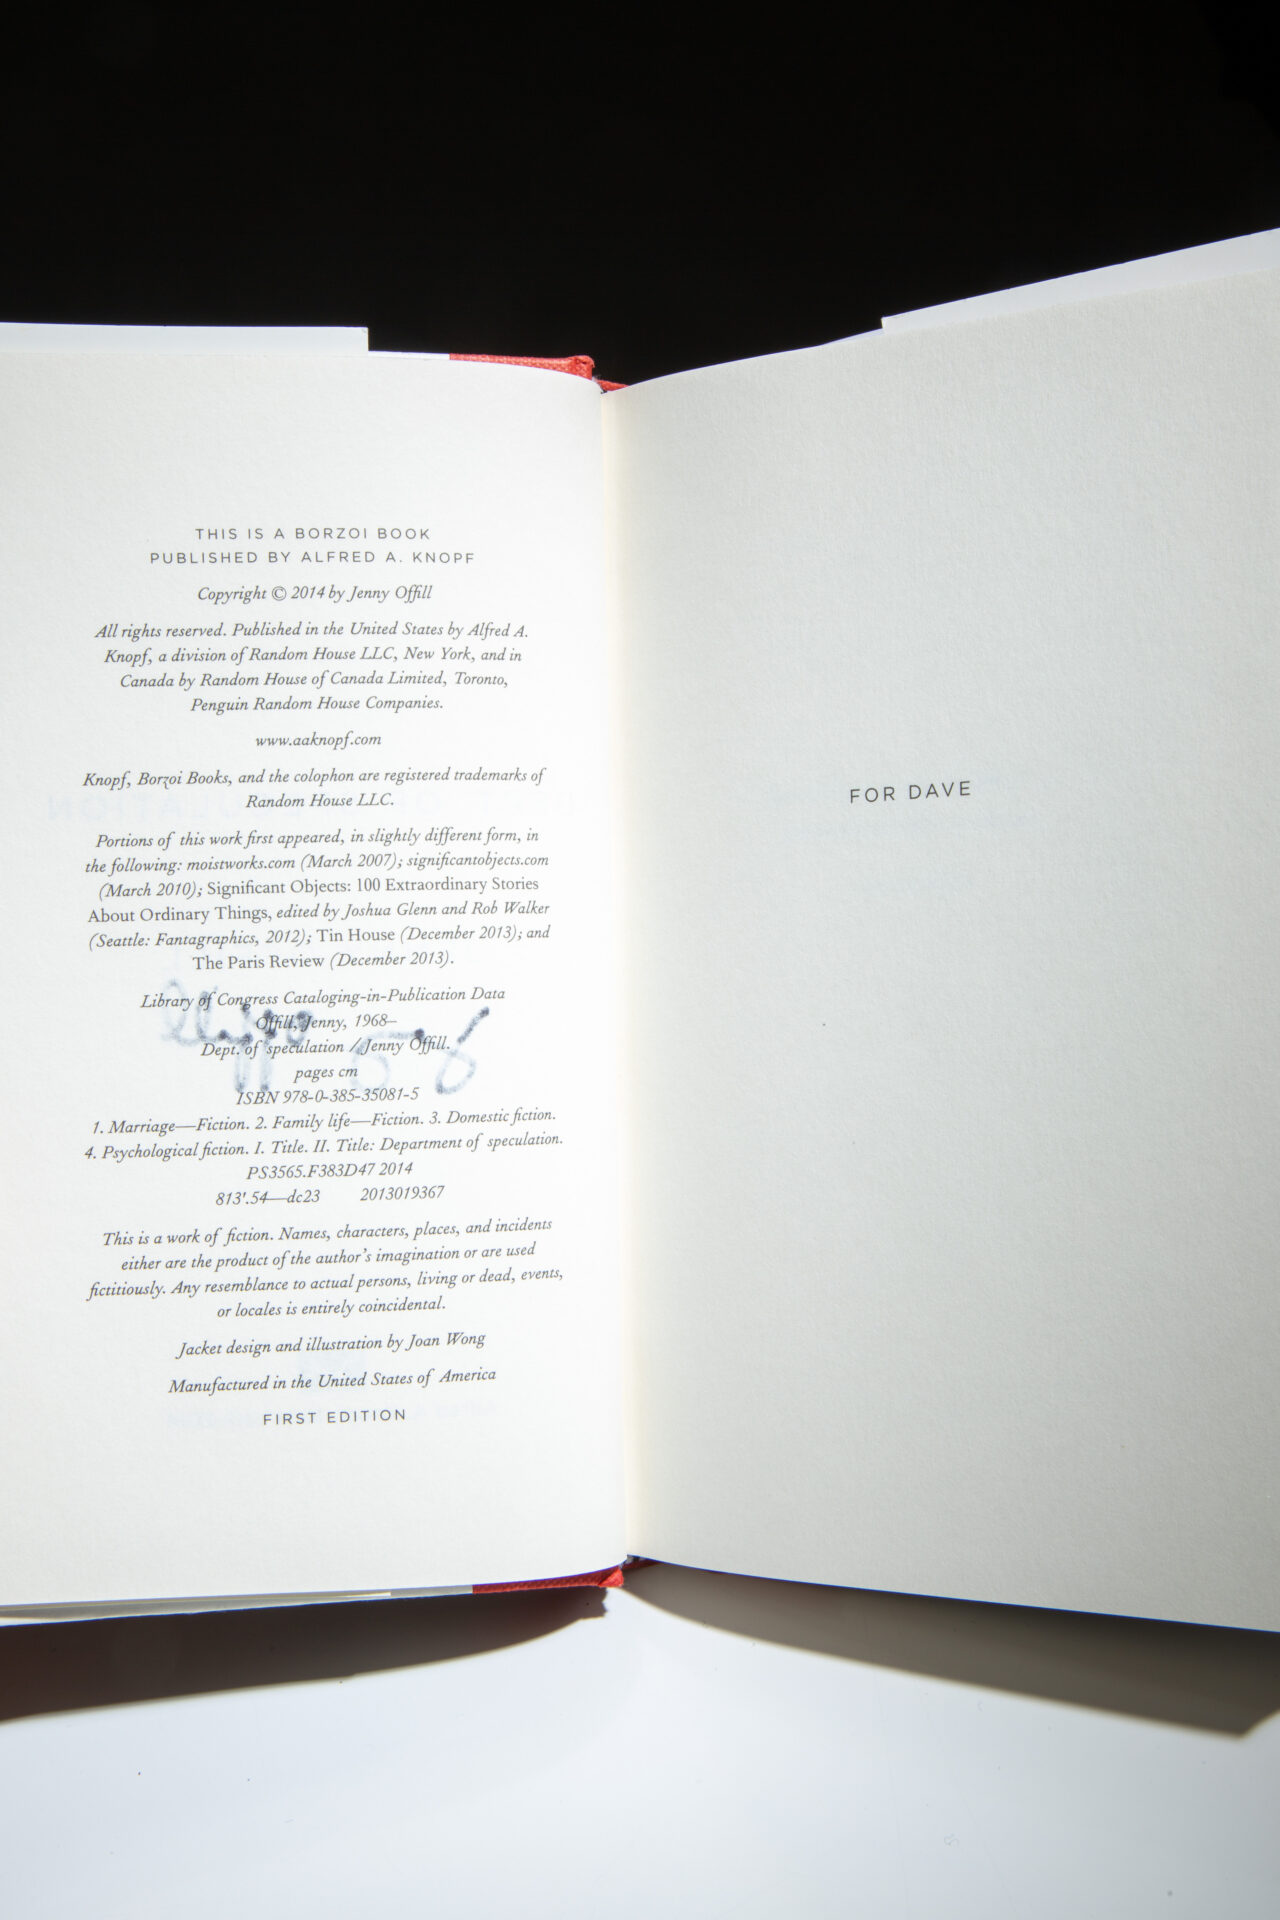 THIS IS A BORZOI BOOK
PUBLISHED BY ALFRED A. KNOPF
Copyright © 2014 by Jenny Offill
All rights reserved. Published in the United States by Alfred A.
Knopf, a division of Random House LLC, New York, and in
Canada by Random House of Canada Limited, Toronto,
Penguin Random House Companies.
www.aaknopf.com
Knopf, Borzoi Books, and the colophon are registered trademarks of
Random House LLC.
Portions of this work first appeared, in slightly different form, in
the following: moistworks.com (March 2007); significantobjects.com
(March 2010); Significant Objects: 100 Extraordinary Stories
About Ordinary Things, edited by Joshua Glenn and Rob Walker
(Seattle: Fantagraphics, 2012); Tin House (December 2013); and
The Paris Review (December 2013).
Library of Congress Cataloging-in-Publication Data
Offill, Jenny, 1968–
Dept. of speculation / Jenny Offill.
pages cm
ISBN 978-0-385-35081-5
1. Marriage—Fiction. 2. Family life—Fiction. 3. Domestic fiction.
4. Psychological fiction. I. Title. II. Title: Department of speculation.
PS3565.F383D47 2014
813'.54—dc23 2013019367
This is a work of fiction. Names, characters, places, and incidents
either are the product of the author's imagination or are used
fictitiously. Any resemblance to actual persons, living or dead, events,
or locales is entirely coincidental.
Jacket design and illustration by Joan Wong
Manufactured in the United States of America
FIRST EDITION
FOR DAVE